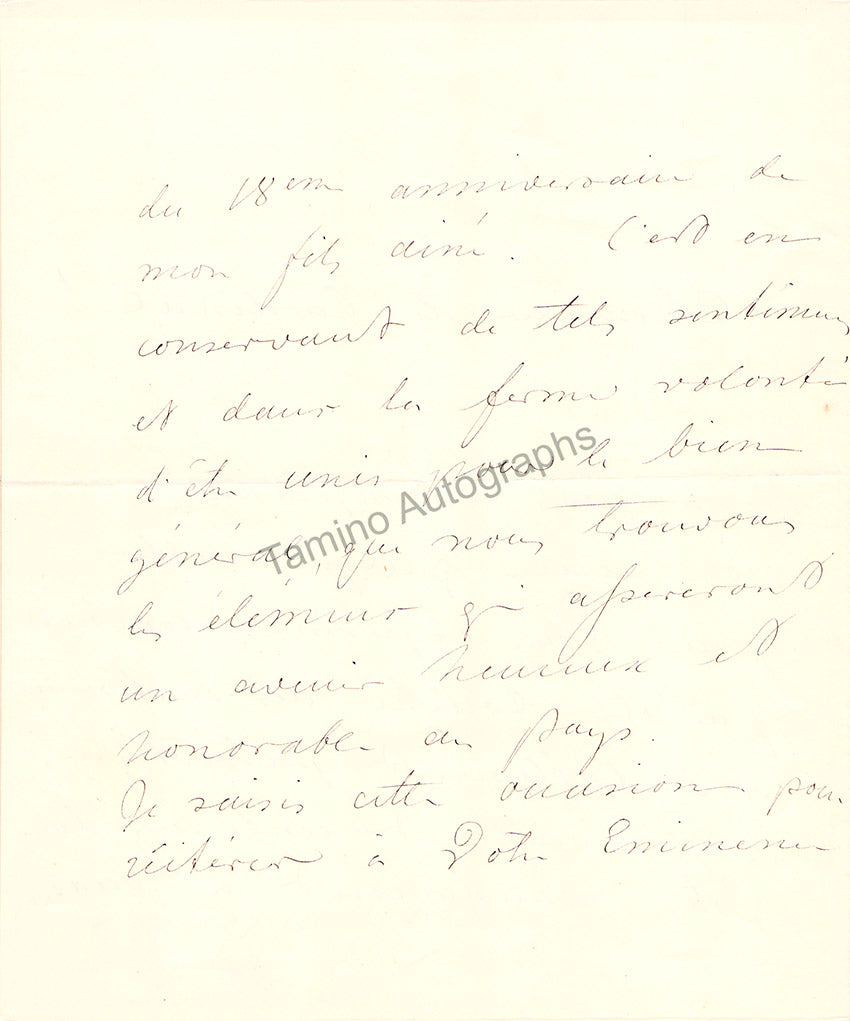 du 18em anniversaire de
mon fils aîné. C'est en
conservant de tels sentimens
et dans la ferme volonté
d'être unis pour le bien
général, que nous trouvons
les élémens qui assureront
un avenir heureux et
honorable au pays.
Je saisis cette occasion pour
réitérer à Votre Eminence
Tamino Autographs